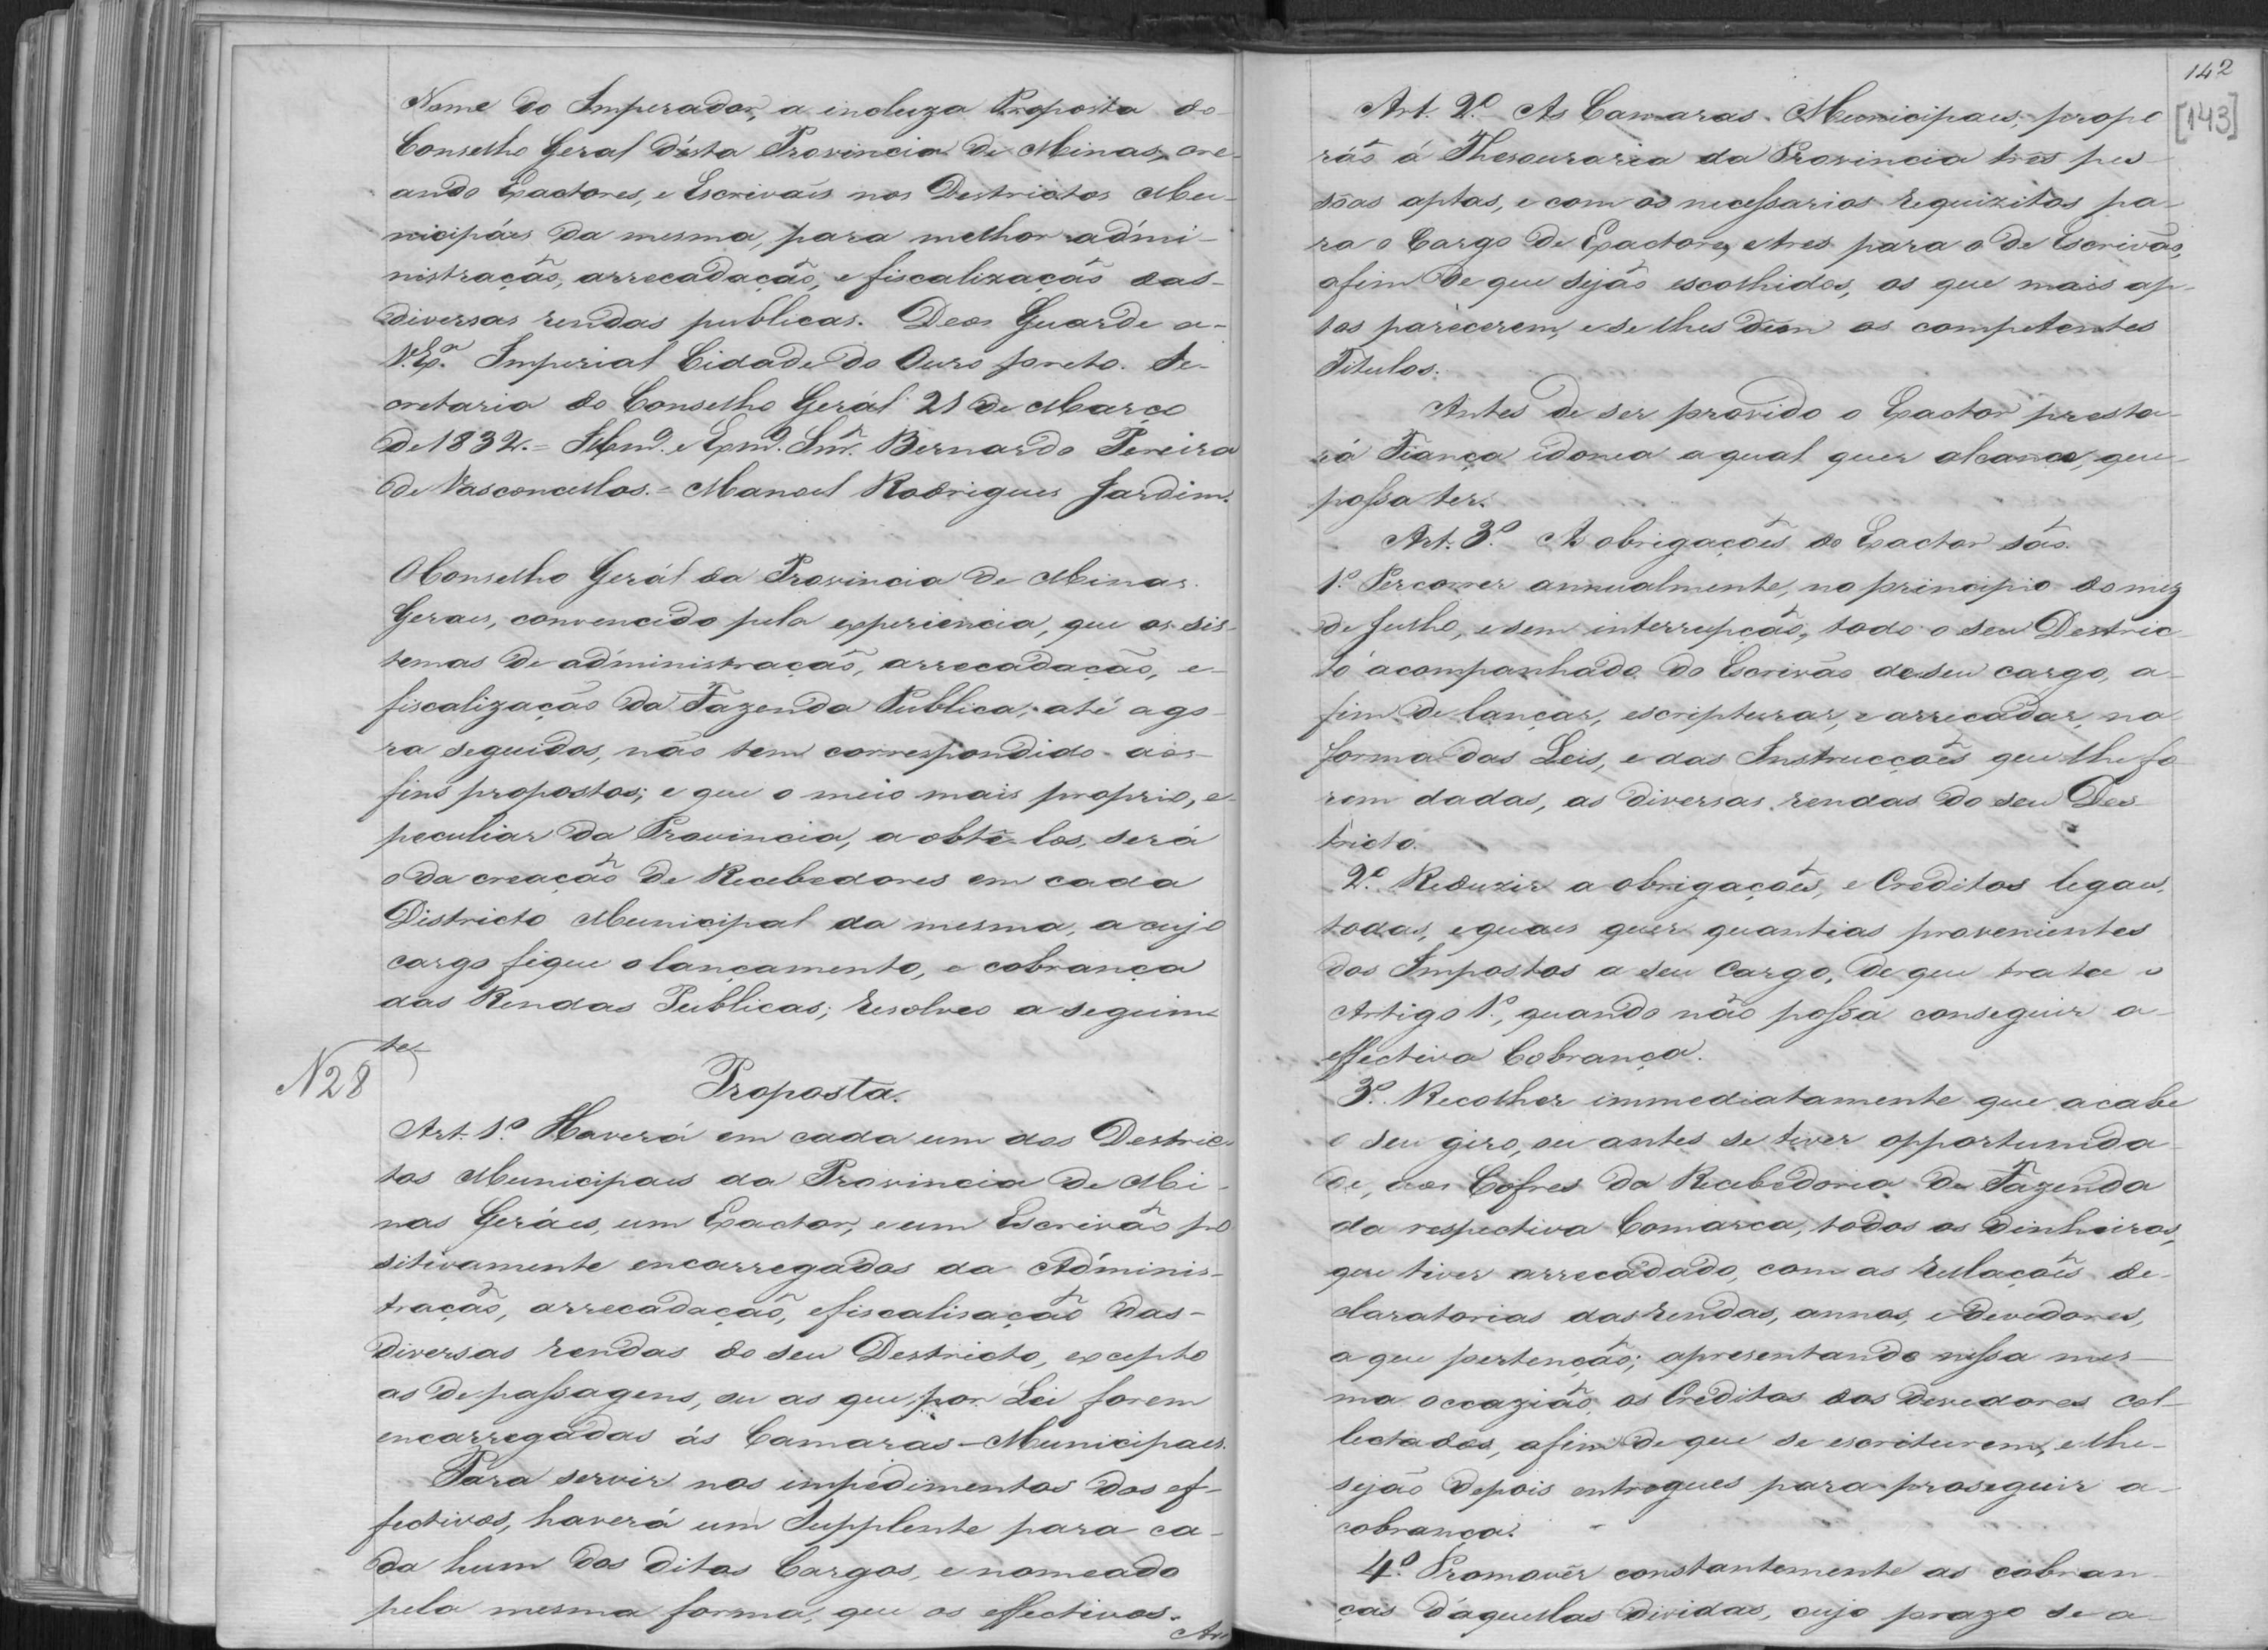 Nome do Imperador, a incluza Proposta do
Conselho Geral désta Provincia de Minas, cre-
ando Exactores, e Escrivaẽs nos Destrictos Mu-
nicipáes da mesma, para melhor admi-
nistração, arrecadação, e fiscalização das
diversas rendas publicas. Deos Guarde a
V. Exª. Imperial Cidade do Ouro Preto. Se-
cretaria do Conselho Gerál 21 de Março
de 1832.= Illmº. e Exmº. Snr. Bernardo Pereira
de Vasconcellos.= Manoel Rodrigues Jardim.
O Conselho Gerál da Provincia de Minas
Geraes, convencido pela experiencia, que os sis-
temas de administração, arrecadação, e
fiscalização da Fazenda Publica, até ago-
ra seguidos, não tem correspondido aos
fins propostos; e que o meio mais proprio, e
peculiar da Provincia, a obtê-los, será
o da creação de Recebedores em cada
Districto Municipal da mesma, a cujo
cargo fique o lançamento, e cobrança
das Rendas Publicas; resolveo a seguin-
te
N 28
Proposta.
Art. 1º. Haverá em cada um dos Destric-
tos Municipaes da Provincia de Mi-
nas Geráes, um Exactor, e um Escrivão po
sitivamente encarregados da Adminis-
tração, arrecadação, e fiscalisação das
diversas rendas do seu Destricto, excepto
as de passagens, ou as que por Lei forem
encarregadas ás Camaras Municipaes.
Para servir nos impedimentos dos ef-
fectivos, haverá um Supplente para ca-
da hum dos ditos Cargos, e nomeado
pela mesma forma, que os effectivos.
Ar
142
[143]
Art. 2º. As Camaras Municipaes, propo
rão á Thesouraria da Provincia tres pes
sôas aptas, e com os necessarios requizitos pa-
ra o Cargo de Exactor, e tres para o de Escrivão,
afim de que sejão escolhidos, os que mais ap-
tos parecerem, e se lhes dêm os competentes
Titulos.
Antes de ser provido o Exactor presta-
rá Fiança idonea a qual quer alcance, que
possa ter.
Art. 3º. As obrigações do Exactor são
1º. Percorrer annualmente, no principio do mez
de Julho, e sem interrupção, todo o seu Destric
to acompanhado do Escrivão de seu cargo, a
fim de lançar, escripturar, e arrecadar, na
forma das Leis, e das Instrucções que lhe fo
rem dadas, as diversas rendas do seu Des
tricto.
2º. Reduzir a obrigações, e Creditos legaes,
todas, e quaes quer quantias provenientes
dos Impostos a seu Cargo, de que trata o
Artigo 1º., quando não possa conseguir a
effectiva Cobrança.
3º. Recolher immediatamente que acabe
o seu giro, ou antes se tiver opportunida
de, aos Cofres da Recebedoria de Fazenda
da respectiva Comarca, todos os dinheiros,
que tiver arrecadado, com as relações de-
claratorias das rendas, annos, e devedores,
a que pertenção; apresentando nessa mes-
ma occazião os Creditos dos devedores col-
lectados, afim de que se escriturem, e lhe
sejão depois entregues para proseguir a
cobrança.
4º. Promovêr constantemente as cobran
ças d'aquellas dividas, cujo prazo se a-